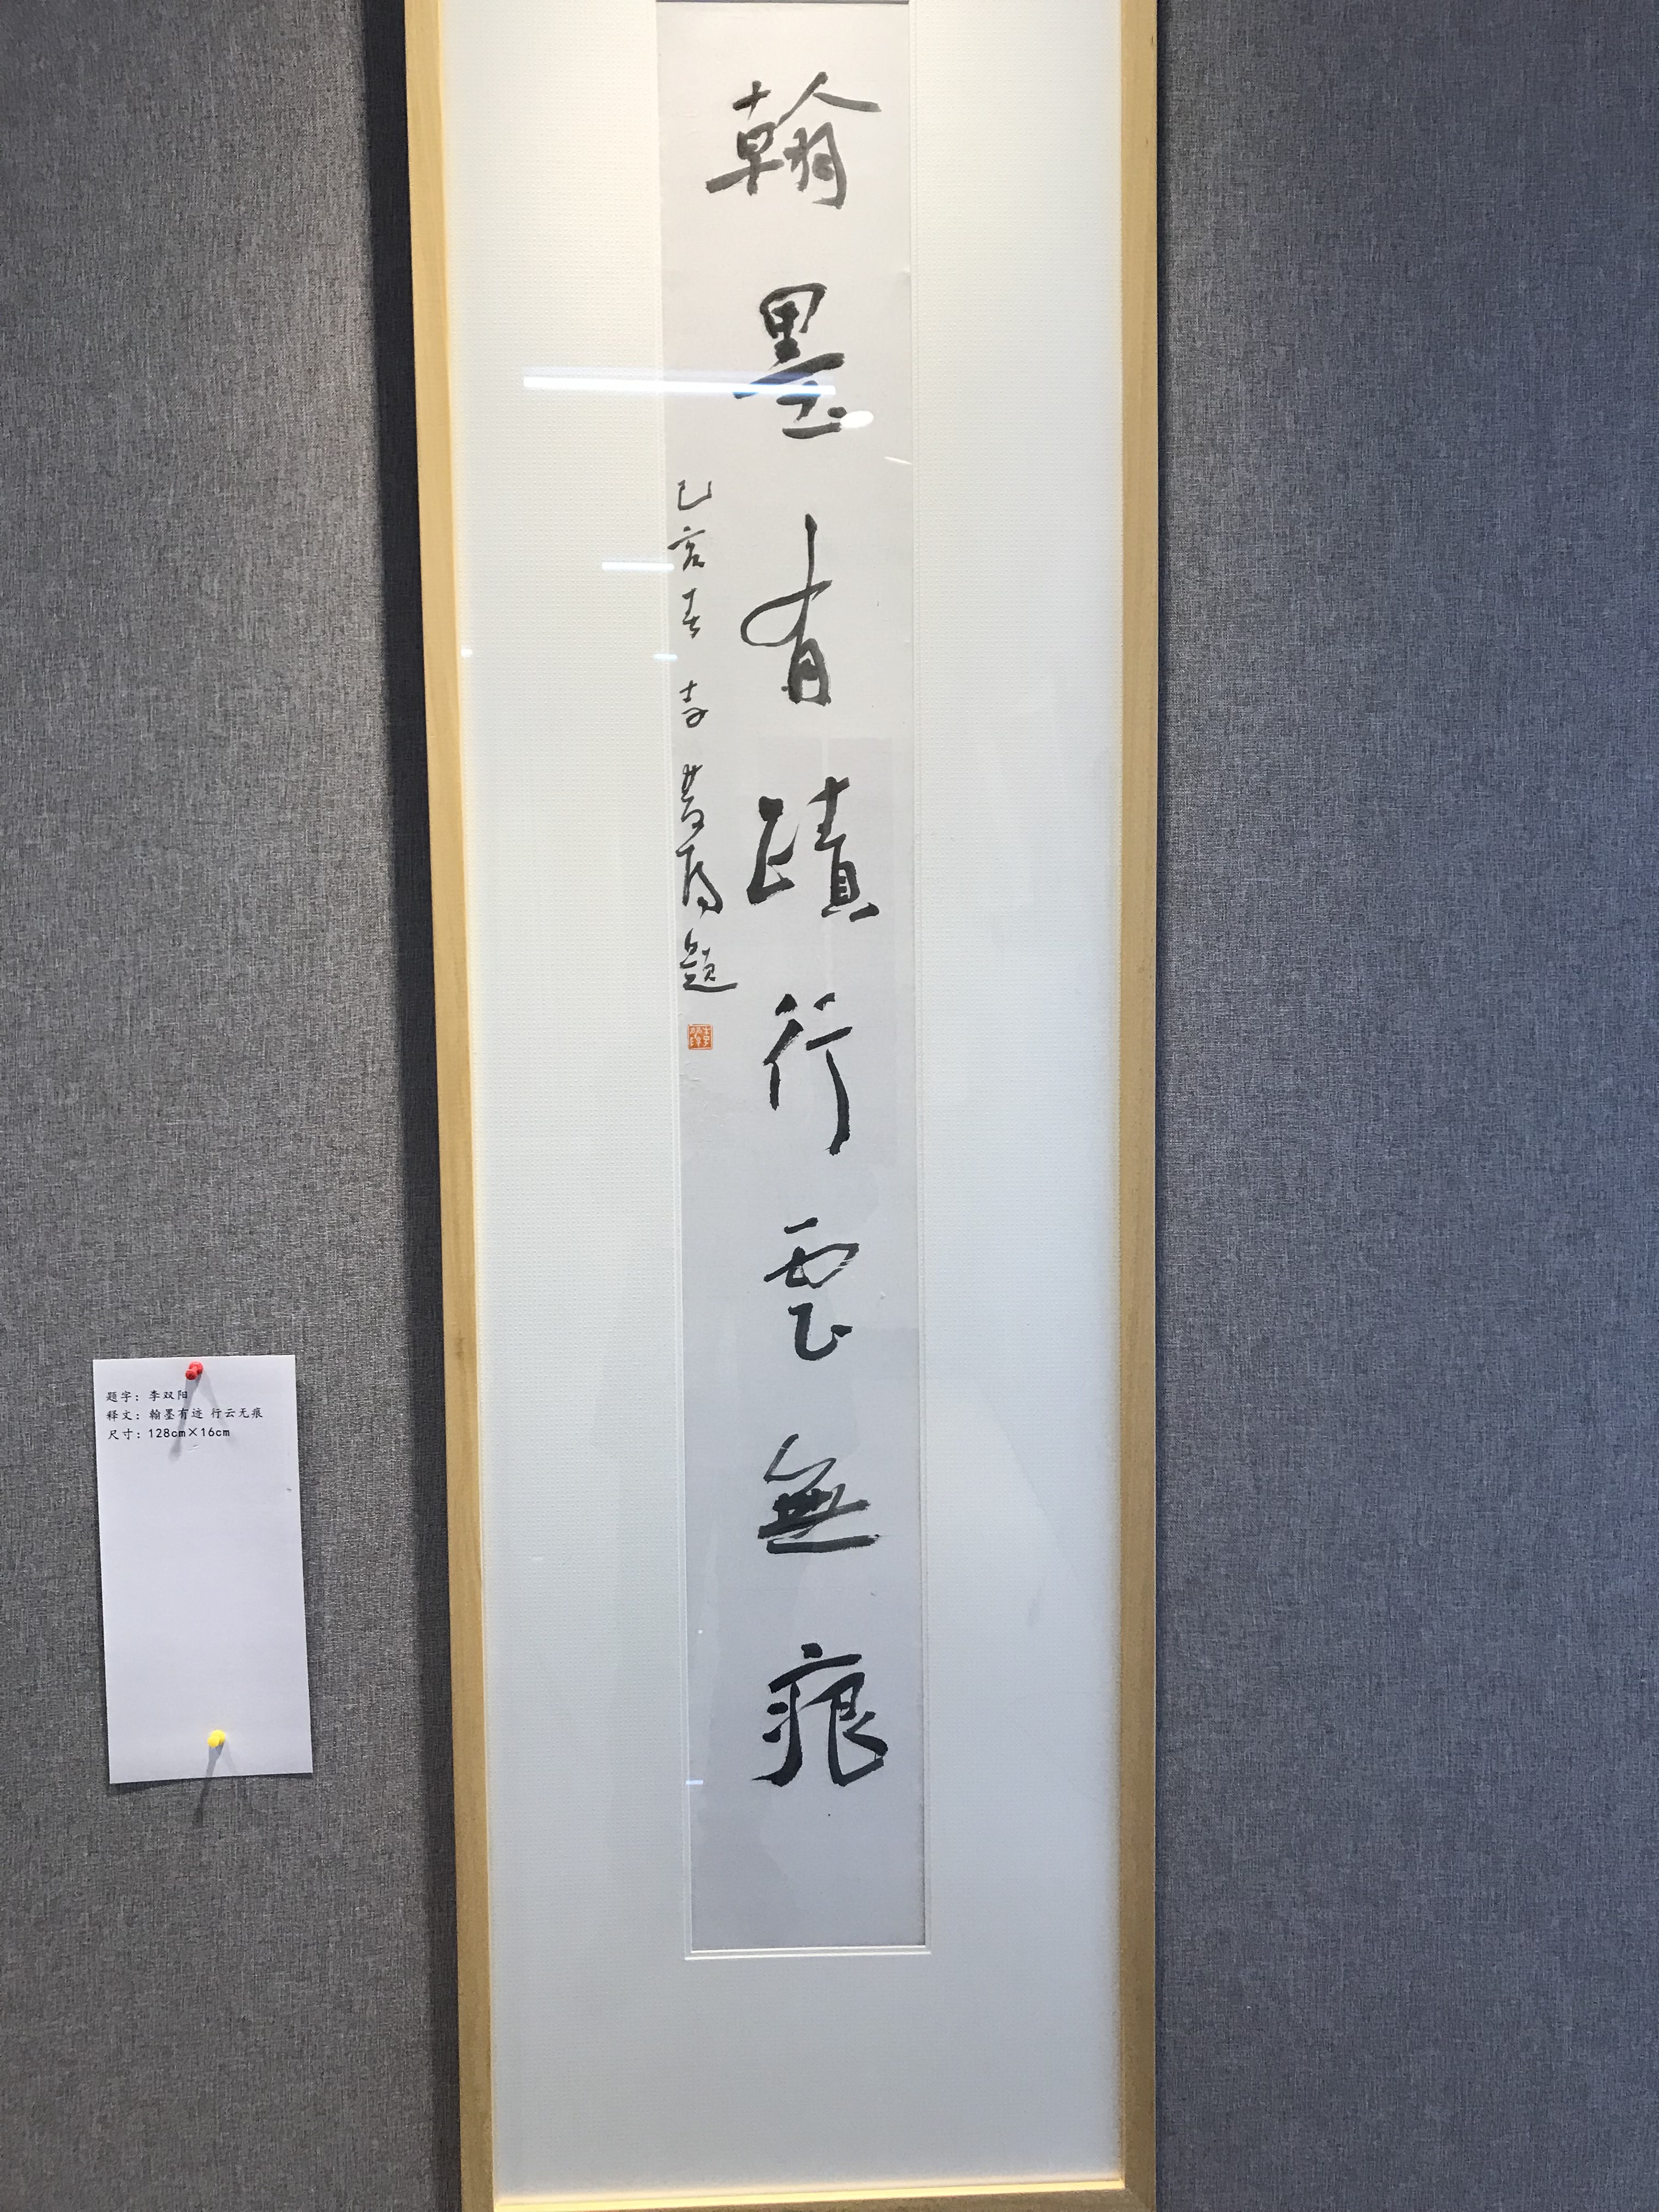 翰墨有蹟行雲無痕
己亥春李双陽題
题字：李双阳
释文：翰墨有迹 行云无痕
尺寸：128cm×16cm